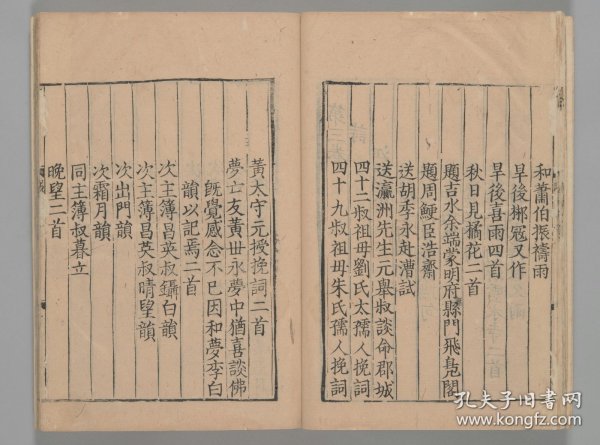 和蕭伯振禱雨
旱後郴冦又作
旱後喜雨四首
秋日見橘花二首
題吉水余端蒙明府縣門飛鳧閣
題周鯁臣浩齋
送胡季永赴漕試
送瀛洲先生元舉叔談命郡城
四十二叔祖母劉氏太孺人挽詞
四十九叔祖母朱氏孺人挽詞
黃太守元授挽詞二首
夢亡友黃世永夢中猶喜談佛
既覺感念不已因和夢李白
韻以記焉二首
次主簿昌英叔鑷白韻
次主簿昌英叔晴望韻
次出門韻
次霜月韻
同主簿叔暮立
晚望二首
孔夫子旧书网
www.kongfz.com